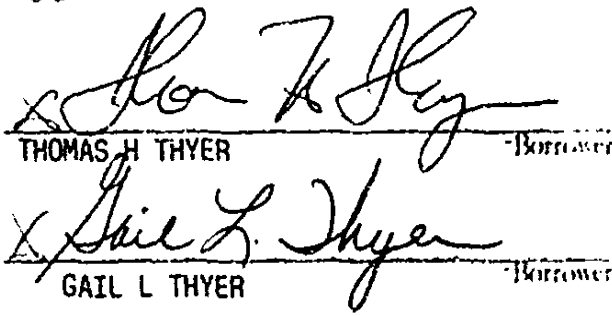 X Thom H Thyer
THOMAS H THYER -Borrower
X Gail L. Thyer
GAIL L THYER -Borrower